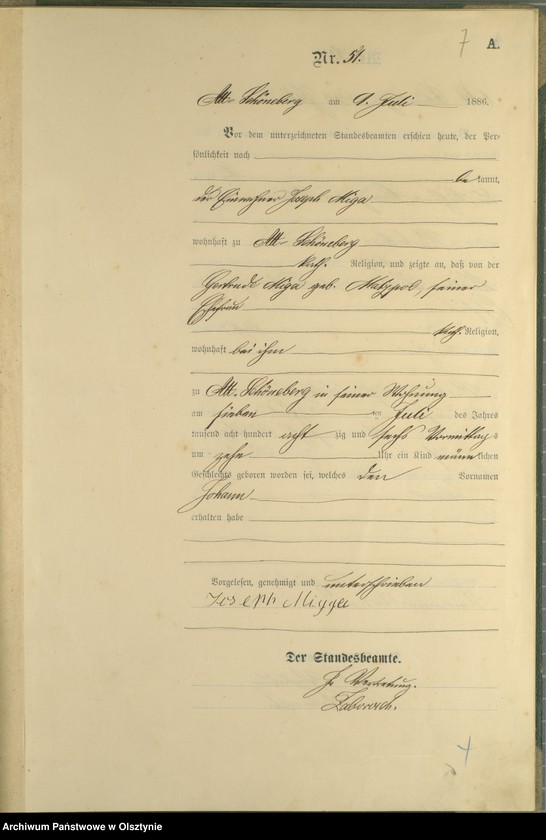 7 A.
Nr. 51.
Alt-Schöneberg am 9. Juli 1886.
Vor dem unterzeichneten Standesbeamten erschien heute, der Per-
sönlichkeit nach
be kannt,
der Einwohner Joseph Miga
wohnhaft zu Alt-Schöneberg
kath. Religion, und zeigte an, daß von der
Gertrude Miga geb. seiner
Ehefrau
kath. Religion,
wohnhaft bei ihm
zu Alt-Schöneberg in seiner Wohnung
am sieben ten Juli des Jahres
tausend acht hundert acht zig und sechs Vormittag s
um zehn Uhr ein Kind männ lichen
Geschlechts geboren worden sei, welches den Vornamen
Johann
erhalten habe
Vorgelesen, genehmigt und unterschrieben
Joseph Migga
Der Standesbeamte.
Vertretung.
Archiwum Państwowe w Olsztynie